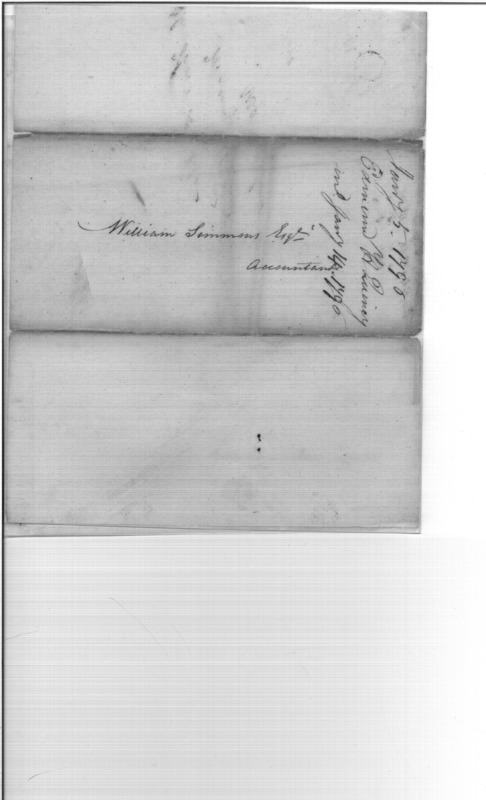 William Simmons Esqr
Accountant
Jany 5. 1796
Edmund H.
recd Jany 14. 1796